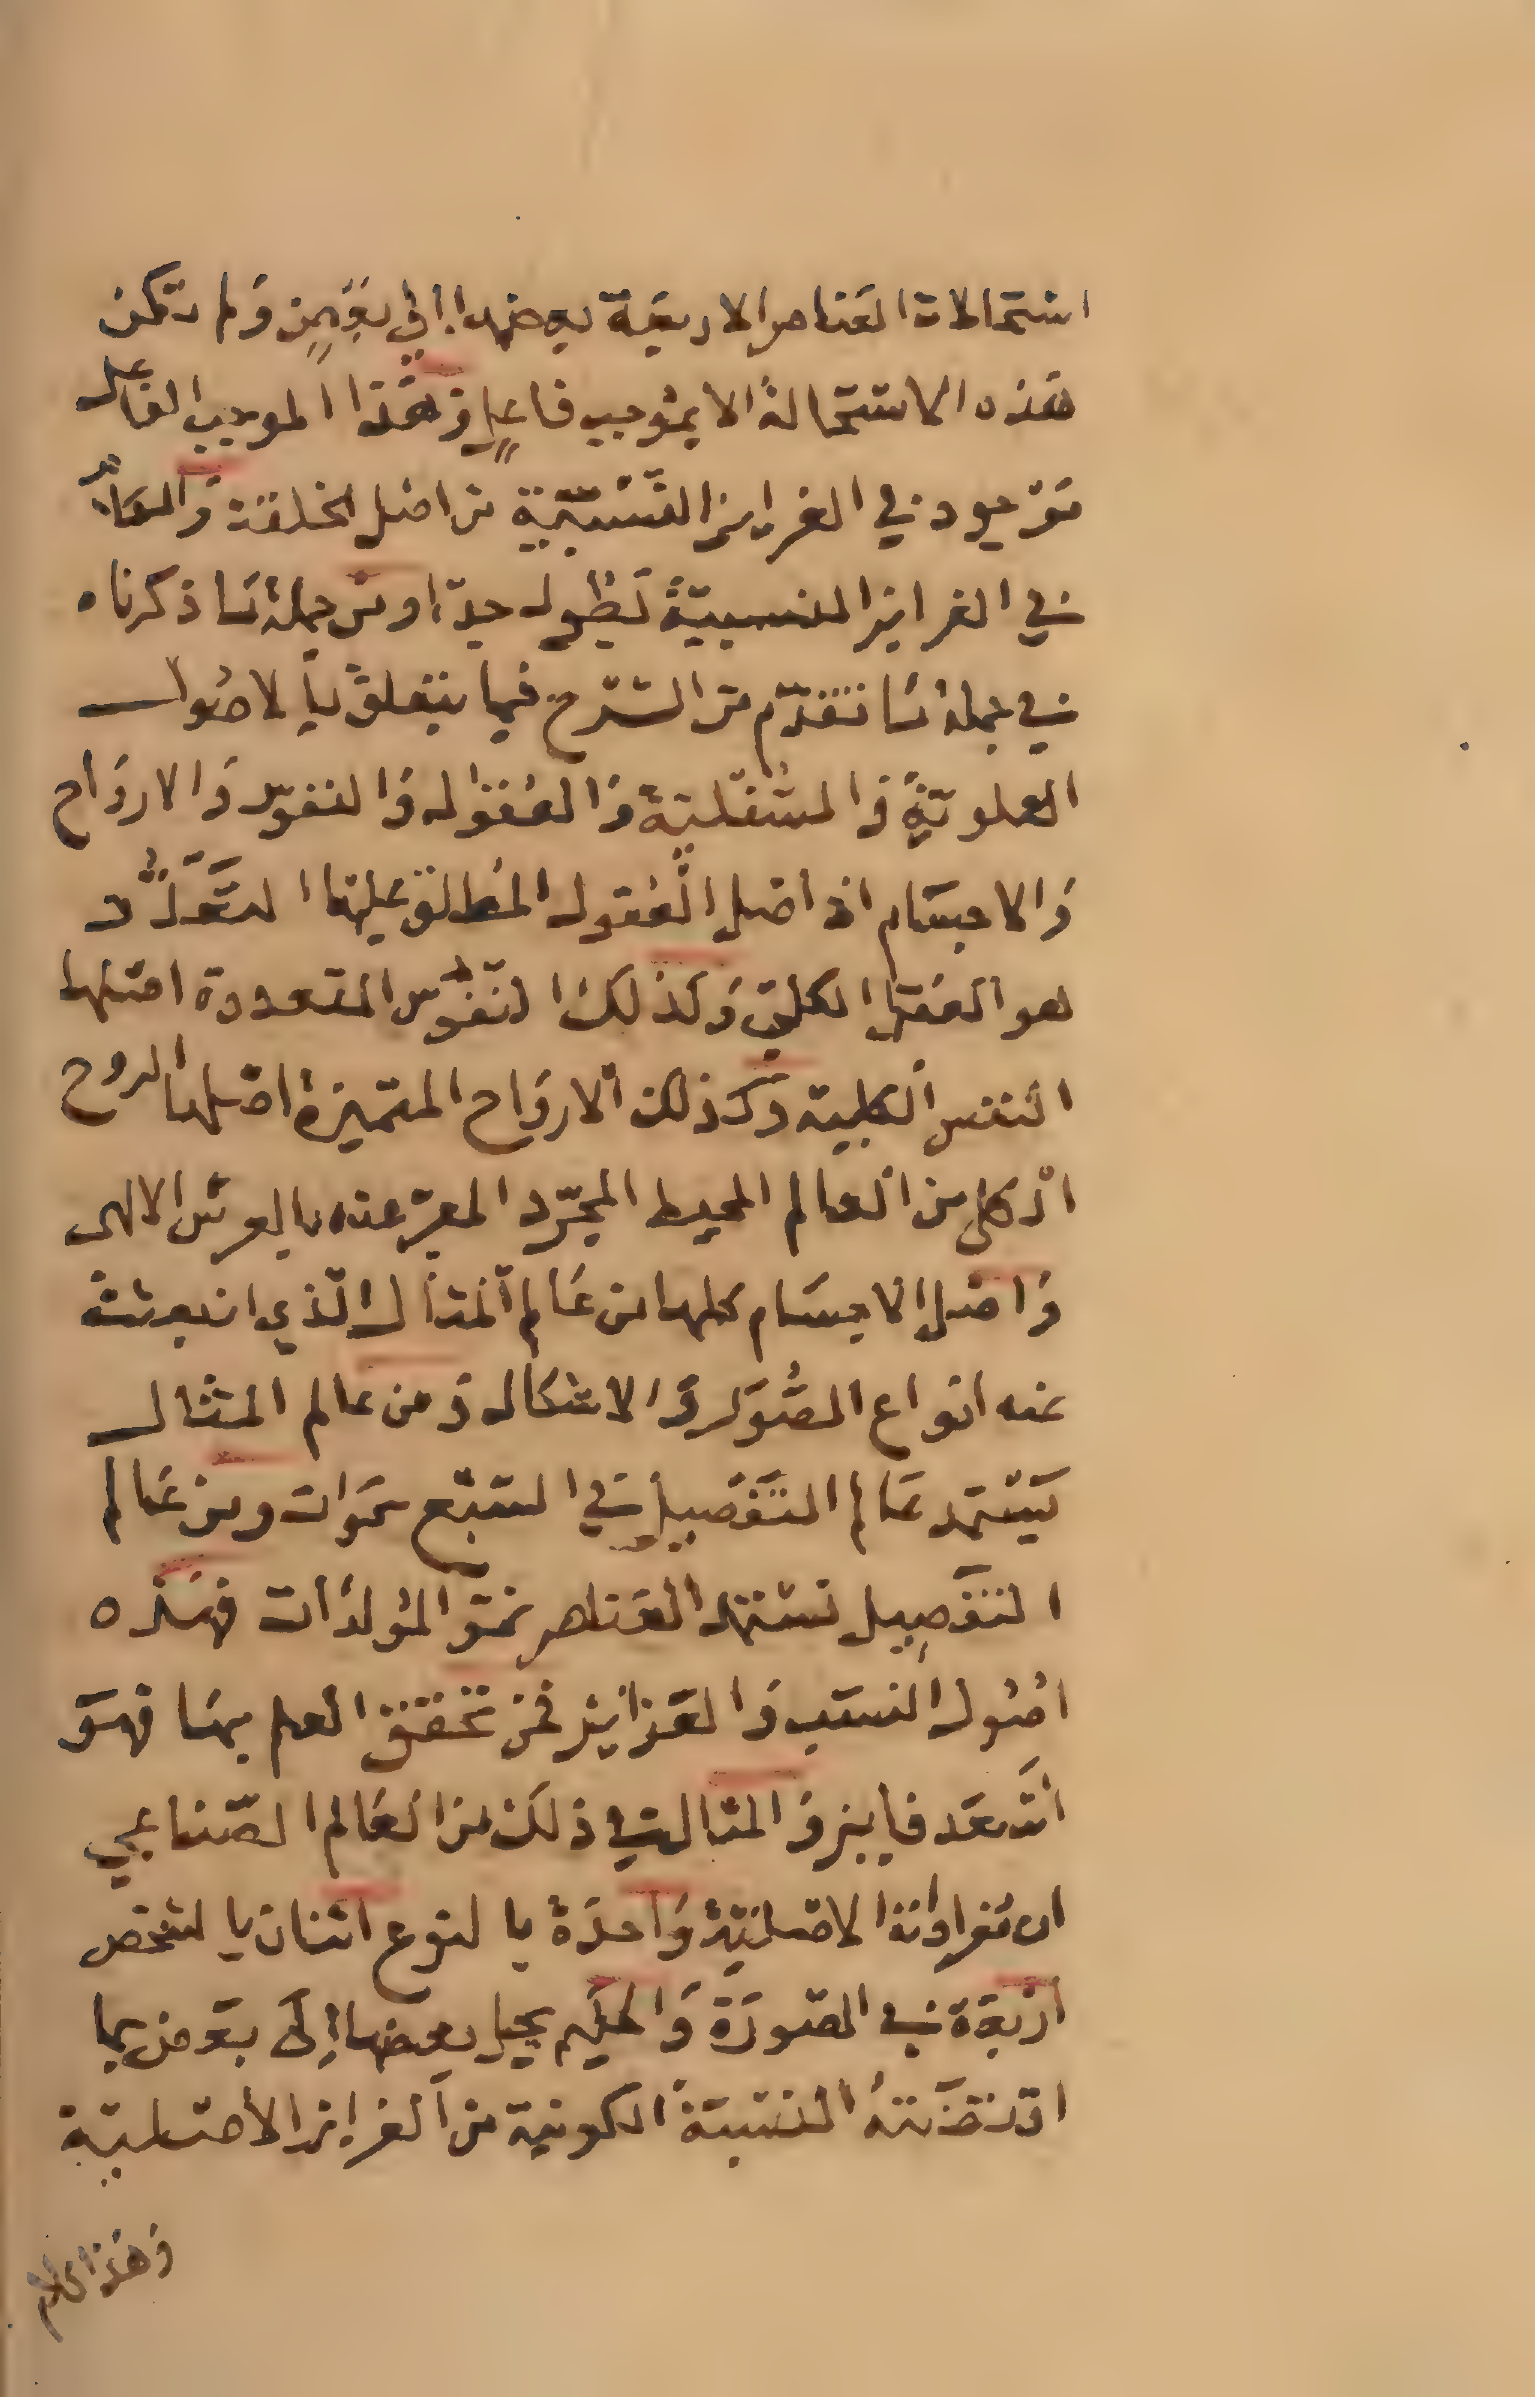 استحالات العناصر الاربعة بعضها الي بعض ولم تكن
هذه الاستحالة الا بموجب فاعل وهذا الموجب الفاعل
موجود في الغرايز النسبية من اصل الخلقة والكلام
في الغرايز النسبية يطول جدا ومن جملة ما ذكرناه
في جملة ما تقدم من الشرح فيما يتعلق بالاصول
العلوية والسفلية والعقول والنفوس والارواح
والاجسام اذ اصل العقول المطلق عليها التعدد
هو العقل الكلي وكذلك النفوس المتعددة اصلها
النفس الكلية وكذلك الارواح المتميزة اصلها الروح
الكلي من العالم المحيط المجرد المعبر عنه بالعرش الالهى
واصل الاجسام كلها من عالم المثال الذي انبعثت
عنه انواع الصور والاشكال ومن عالم المثال
يستمد عالم التفصيل في السبع سموات ومن عالم
التفصيل تستمد العناصر نحو المولدات فهذه
اصول النسب والغرايز فمن تحقق العلم بها فهو
اسعد فايز والمثال في ذلك من العالم الصناعي
ان مفرداته الاصلية واحدة بالنوع اثنان بالشخص
اربعة في الصورة والحكيم يحيل بعضها الى بعض بما
اقتضته النسبة الكونية من الغرايز الاصلية
وهذا الكلام